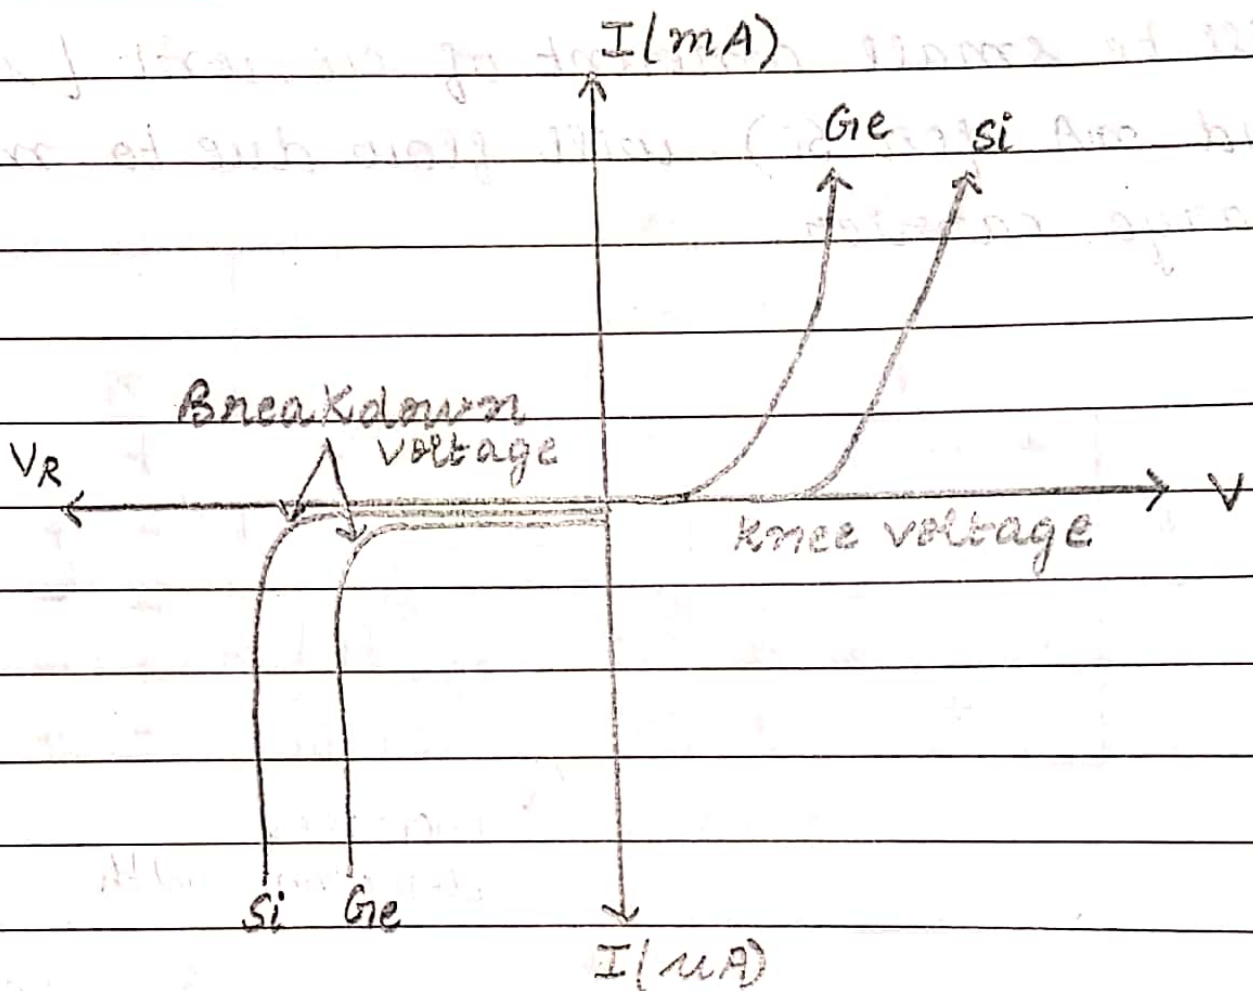 I(mA)
Ge
Si
Breakdown
voltage
VR
V
Knee voltage
Si
Ge
I(μA)